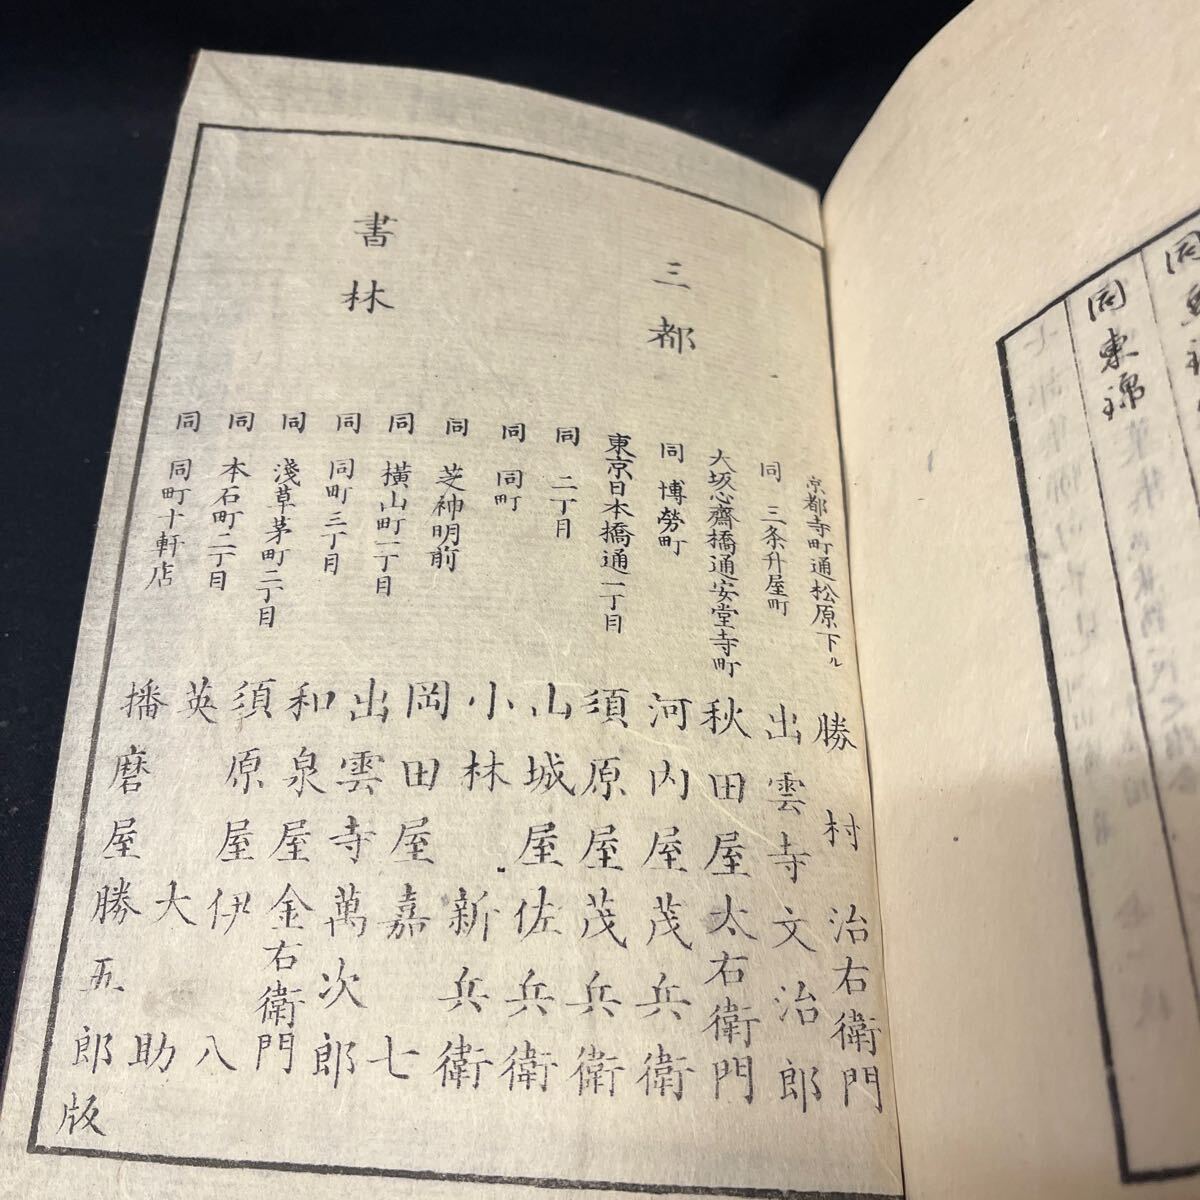 同東
三都
書林
京都寺町通松原下ル 勝村治右衛門
同 三条升屋町 出雲寺文治郎
大坂心齋橋通安堂寺町 秋田屋太右衛門
同 博勞町 河内屋茂兵衛
東京日本橋通一丁目 須原屋茂兵衛
同 二丁目 山城屋佐兵衛
同 同町 小林新兵衛
同 芝神明前 岡田屋嘉七
同 橫山町一丁目 出雲寺萬次郎
同 同町三丁目 和泉屋金右衛門
同 淺草茅町二丁目 須原屋伊八
同 本石町二丁目 英大助
同 同町十軒店 播磨屋勝五郎版